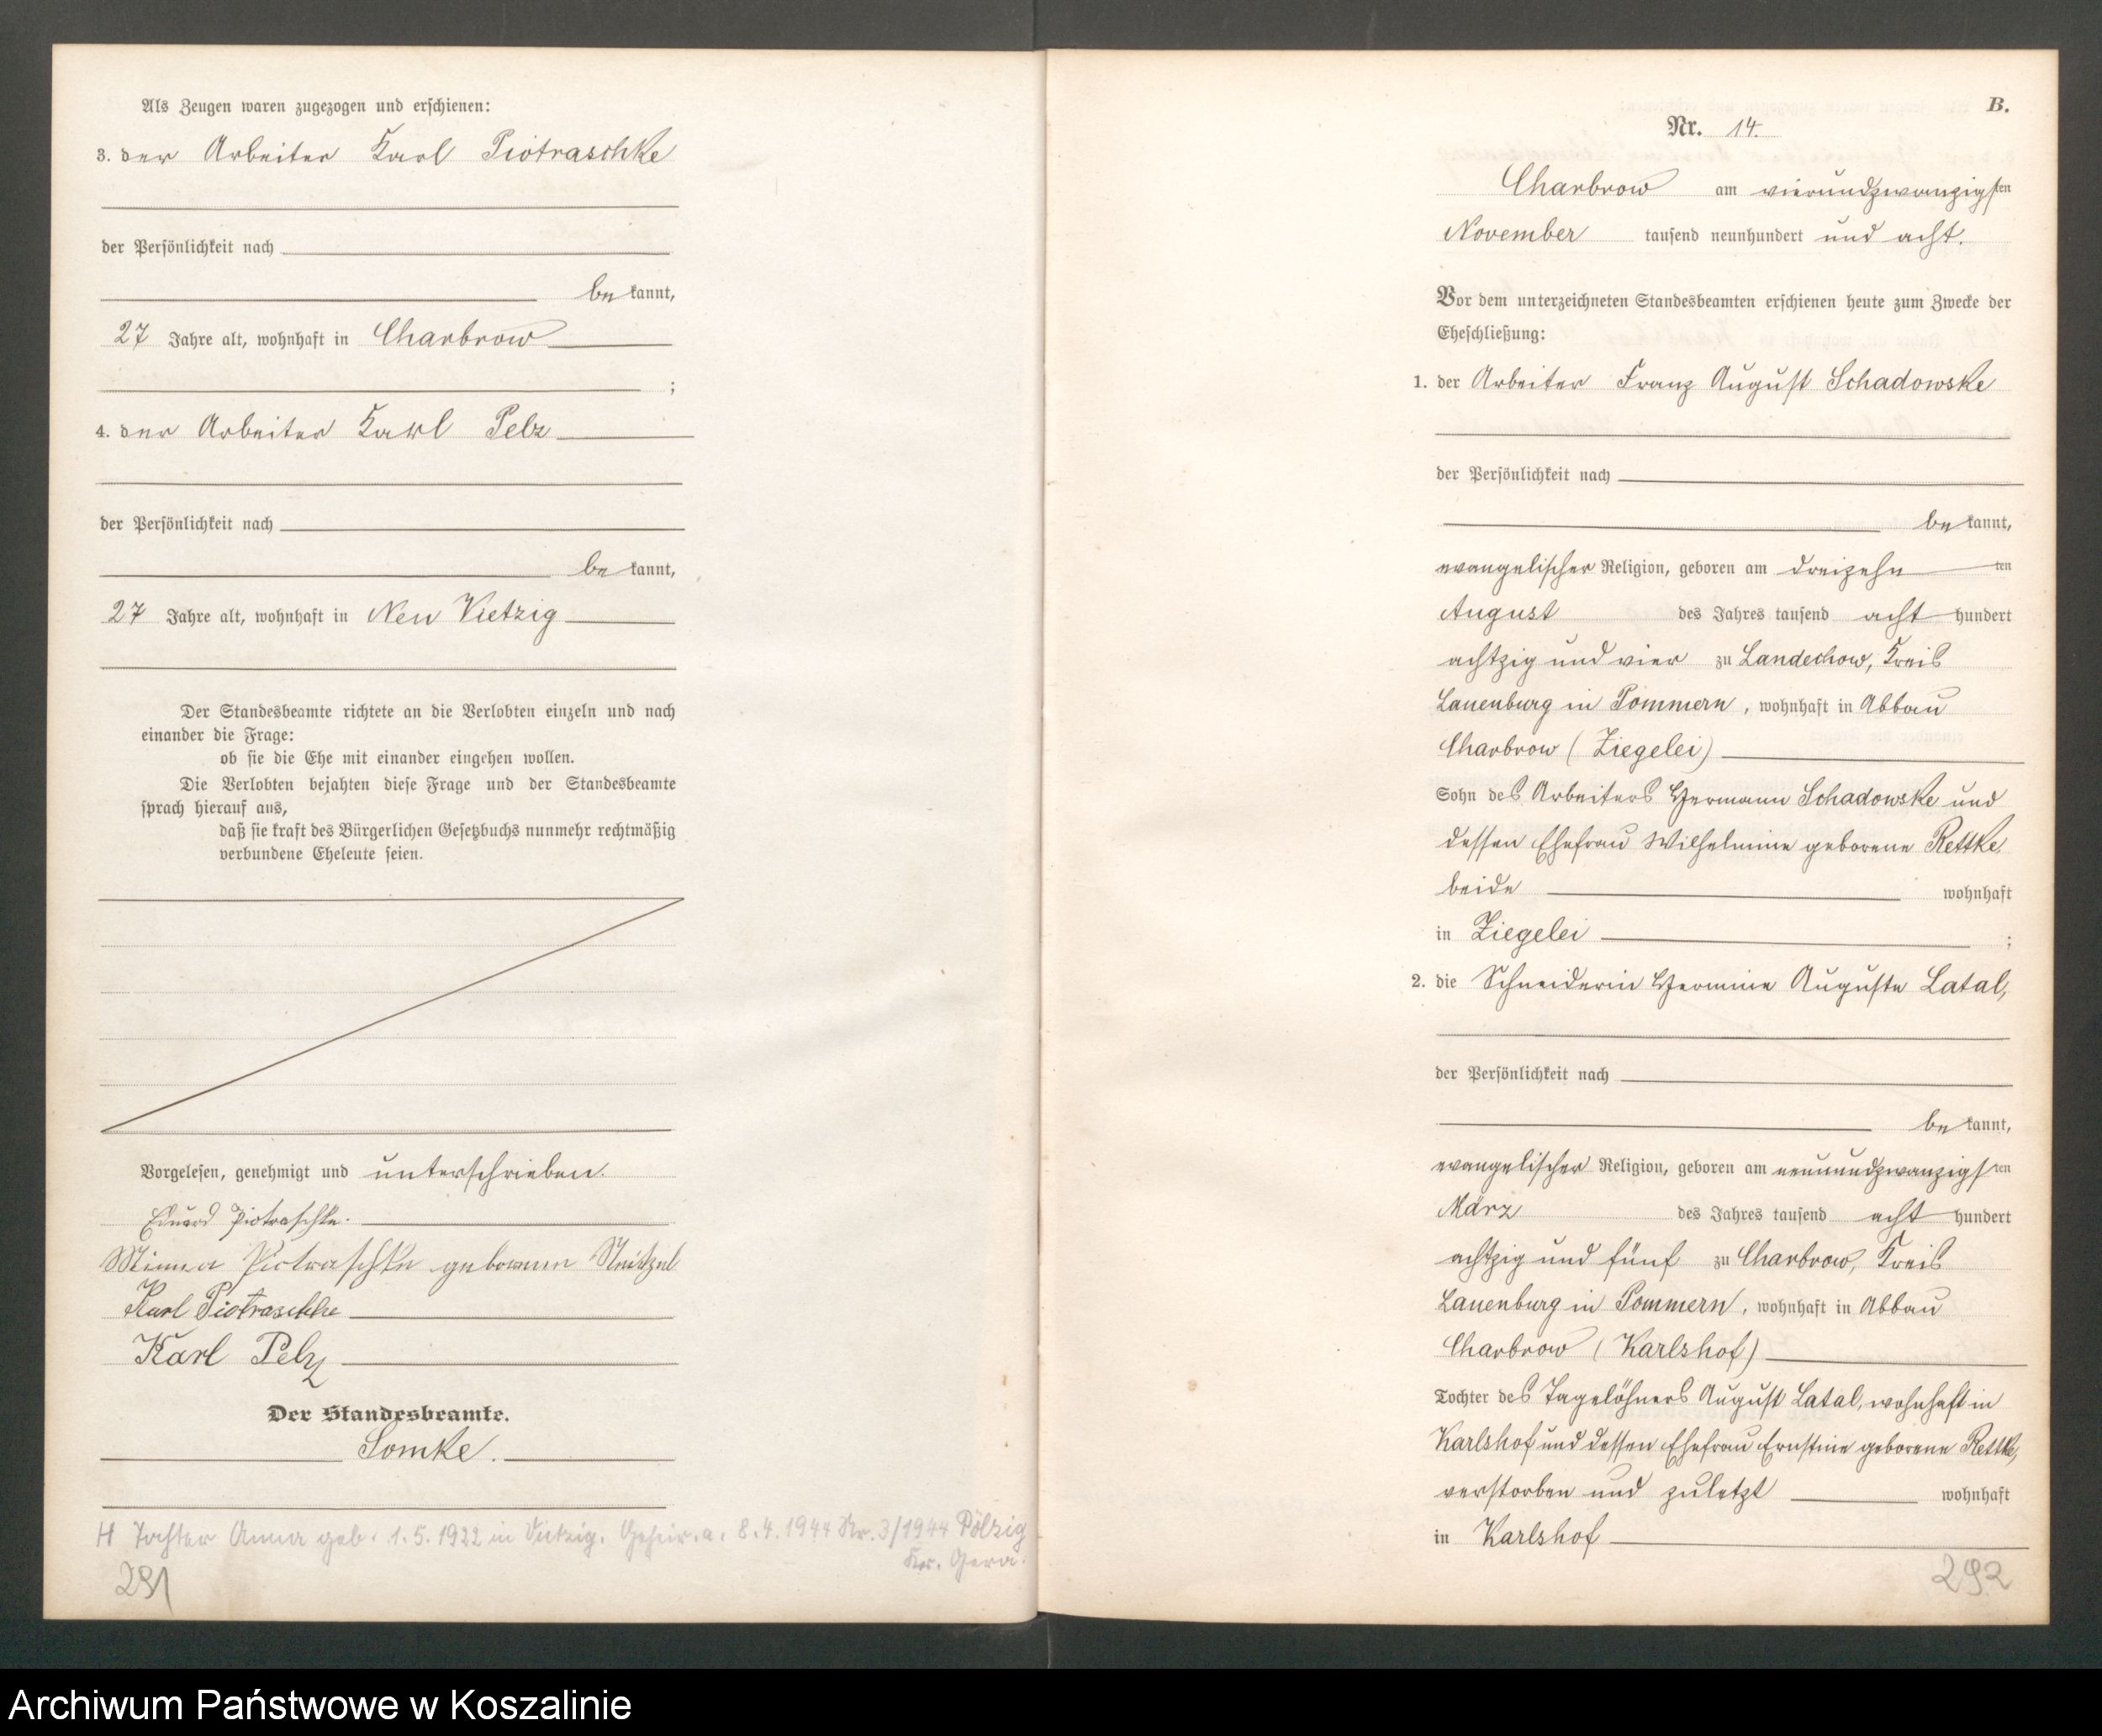 Als Zeugen waren zugezogen und erschienen:
3. der Arbeiter Karl Piotraschke
der Persönlichkeit nach
be kannt,
27 Jahre alt, wohnhaft in Charbrow
;
4. der Arbeiter Karl Pelz
der Persönlichkeit nach
be kannt,
27 Jahre alt, wohnhaft in Neu Vietzig
Der Standesbeamte richtete an die Verlobten einzeln und nach
einander die Frage:
ob sie die Ehe mit einander eingehen wollen.
Die Verlobten bejahten diese Frage und der Standesbeamte
sprach hierauf aus,
daß sie kraft des Bürgerlichen Gesetzbuchs nunmehr rechtmäßig
verbundene Eheleute seien.
Vorgelesen, genehmigt und unterschrieben.
Eduard Piotraschke.
Minna Piotraschke geborene
Karl Piotraschke
Karl Pelz
Der Standesbeamte.
Somke.
H Tochter Anna geb. 1.5.1922 in Vietzig. Geheir. a. 8.4.1944 Nr. 3/1944 Pölzig
Kr. Gera.
291
B.
Nr. 14.
Charbrow am vierundzwanzigsten
November tausend neunhundert und acht.
Vor dem unterzeichneten Standesbeamten erschienen heute zum Zwecke der
Eheschließung:
1. der Arbeiter Franz August Schadowske
der Persönlichkeit nach
be kannt,
evangelischer Religion, geboren am dreizehn ten
August des Jahres tausend acht hundert
achtzig und vier zu Landechow, Kreis
Lauenburg in Pommern, wohnhaft in Abbau
Charbrow (Ziegelei)
Sohn des Arbeiters Hermann Schadowske und
dessen Ehefrau Wilhelmine geborene Rettke,
beide wohnhaft
in Ziegelei ;
2. die Schneiderin Hermine Auguste Latal,
der Persönlichkeit nach
be kannt,
evangelischer Religion, geboren am neunundzwanzigsten
März des Jahres tausend acht hundert
achtzig und fünf zu Charbrow, Kreis
Lauenburg in Pommern, wohnhaft in Abbau
Charbrow (Karlshof)
Tochter des Tagelöhners August Latal, wohnhaft in
Karlshof und dessen Ehefrau Ernstine geborene Rettke,
verstorben und zuletzt wohnhaft
in Karlshof
292
Archiwum Państwowe w Koszalinie